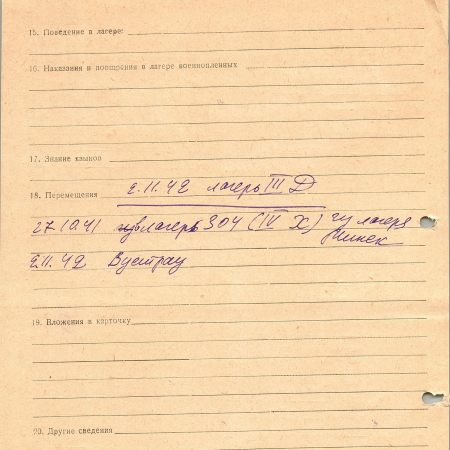 15. Поведение в лагере:
16. Наказания и поощрения в лагере военнопленных
17. Знание языков
18. Перемещения 2.11.42 лагерь III D
27.10.41 шталагерь 304 (IV H) из лагеря
2.11.42 Вустрау
19. Вложения в карточку
20. Другие сведения